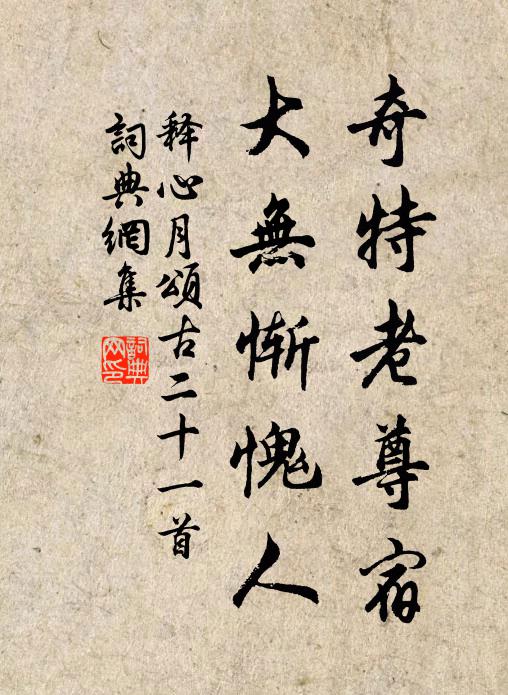 奇特老尊宿
大無慚愧人
释心月頌古二十一首
詞典網集
詞典網印